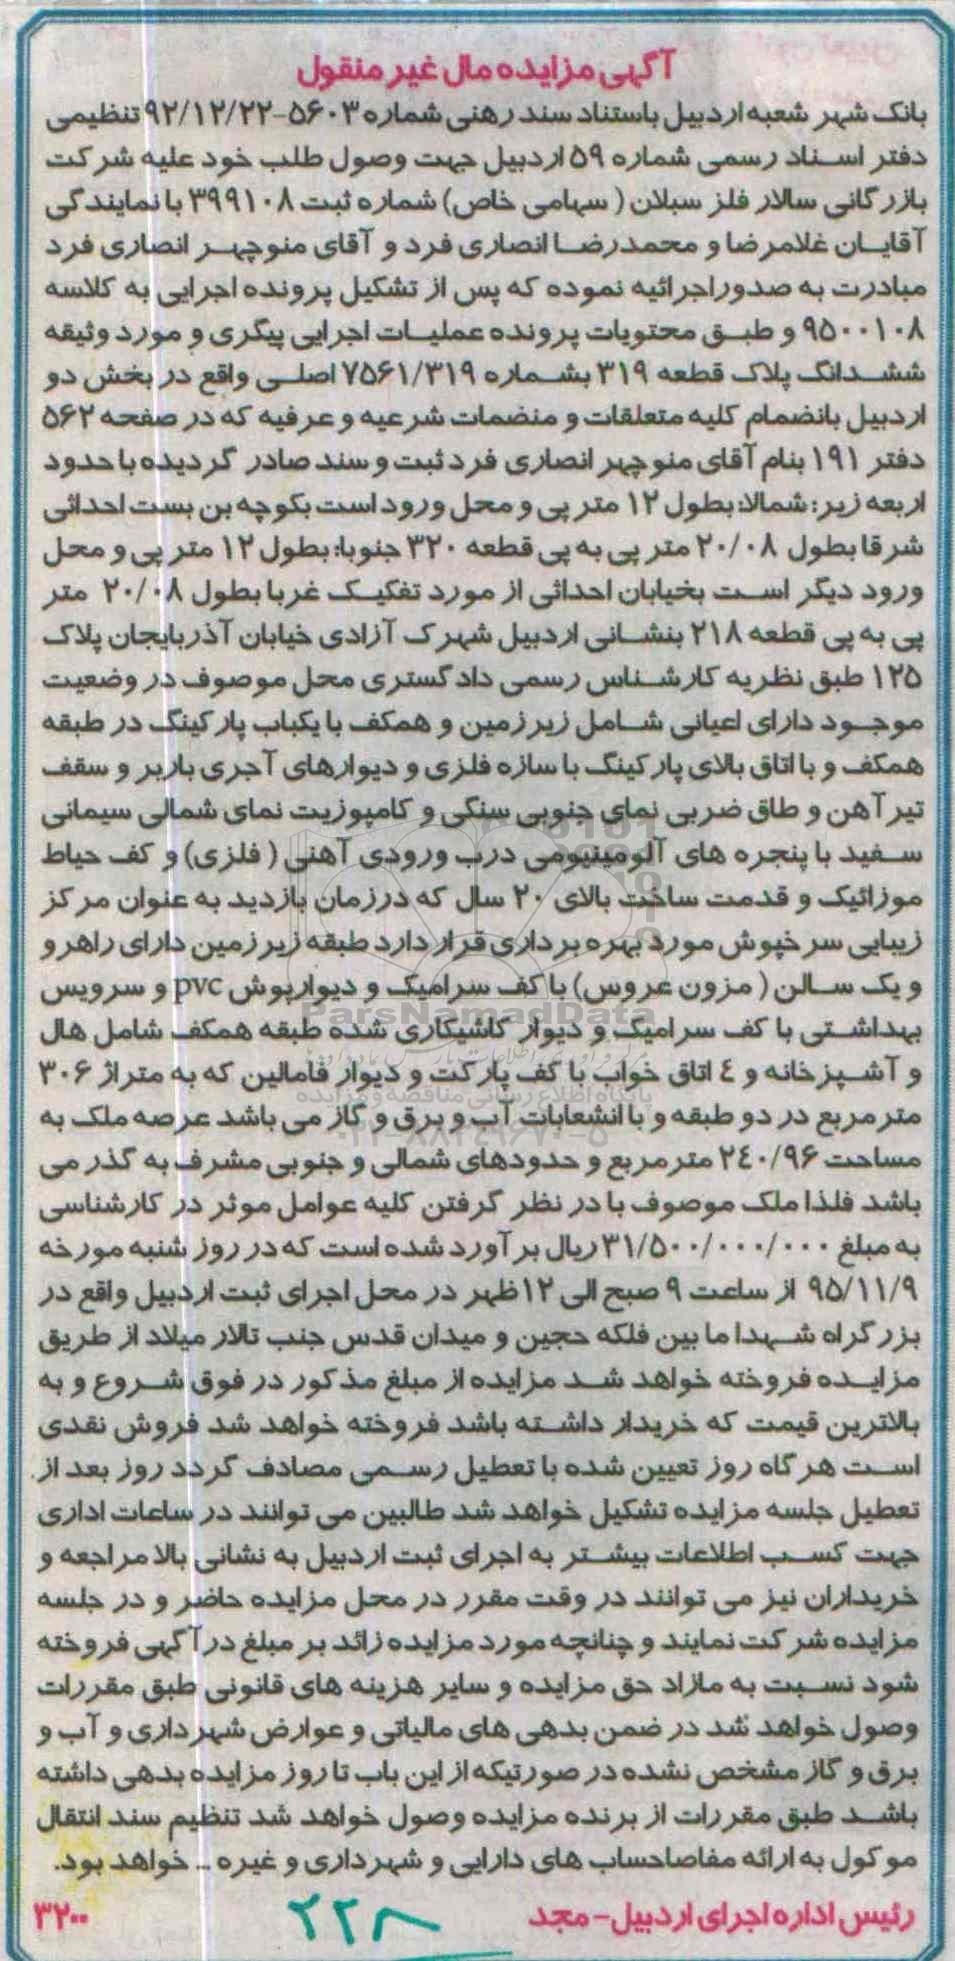 آگهی مزایده مال غیر منقول
بانک شهر شعبه اردبیل باستناد سند رهنی شماره ۵۶۰۳-۹۲/۱۲/۲۲ تنظیمی
دفتر اسناد رسمی شماره ۵۹ اردبیل جهت وصول طلب خود علیه شرکت
بازرگانی سالار فلز سبلان ( سهامی خاص) شماره ثبت ۳۹۹۱۰۸ با نمایندگی
آقایان غلامرضا و محمدرضا انصاری فرد و آقای منوچهر انصاری فرد
مبادرت به صدوراجرائیه نموده که پس از تشکیل پرونده اجرایی به کلاسه
۹۵۰۰۱۰۸ و طبق محتویات پرونده عملیات اجرایی پیگری و مورد وثیقه
ششدانگ پلاک قطعه ۳۱۹ بشماره ۷۵۶۱/۳۱۹ اصلی واقع در بخش دو
اردبیل بانضمام کلیه متعلقات و منضمات شرعیه و عرفیه که در صفحه ۵۶۲
دفتر ۱۹۱ بنام آقای منوچهر انصاری فرد ثبت و سند صادر گردیده با حدود
اربعه زیر: شمالا: بطول ۱۲ متر پی و محل ورود است بکوچه بن بست احداثی
شرقا بطول ۲۰/۰۸ متر پی به پی قطعه ۳۲۰ جنوبا: بطول ۱۲ متر پی و محل
ورود دیگر است بخیابان احداثی از مورد تفکیک غربا بطول ۲۰/۰۸ متر
پی به پی قطعه ۲۱۸ بنشانی اردبیل شهرک آزادی خیابان آذربایجان پلاک
۱۲۵ طبق نظریه کارشناس رسمی دادگستری محل موصوف در وضعیت
موجود دارای اعیانی شامل زیرزمین و همکف با یکباب پارکینگ در طبقه
همکف و با اتاق بالای پارکینگ با سازه فلزی و دیوارهای آجری باربر و سقف
تیرآهن و طاق ضربی نمای جنوبی سنگی و کامپوزیت نمای شمالی سیمانی
سفید با پنجره های آلومینیومی درب ورودی آهنی ( فلزی) و کف حیاط
موزائیک و قدمت ساخت بالای ۲۰ سال که درزمان بازدید به عنوان مرکز
زیبایی سرخپوش مورد بهره برداری قرار دارد طبقه زیرزمین دارای راهرو
و یک سالن ( مزون عروس) با کف سرامیک و دیوارپوش pvc و سرویس
بهداشتی با کف سرامیک و دیوار کاشیکاری شده طبقه همکف شامل هال
و آشپزخانه و ٤ اتاق خواب با کف پارکت و دیوار فامالین که به متراژ ۳۰۶
مترمربع در دو طبقه و با انشعابات آب و برق و گاز می باشد عرصه ملک به
مساحت ۲٤۰/۹۶ مترمربع و حدودهای شمالی و جنوبی مشرف به گذر می
باشد فلذا ملک موصوف با در نظر گرفتن کلیه عوامل موثر در کارشناسی
به مبلغ ۳۱/۵۰۰/۰۰۰/۰۰۰ ریال برآورد شده است که در روز شنبه مورخه
۹۵/۱۱/۹ از ساعت ۹ صبح الی ۱۲ ظهر در محل اجرای ثبت اردبیل واقع در
بزرگراه شهدا ما بین فلکه حجین و میدان قدس جنب تالار میلاد از طریق
مزایده فروخته خواهد شد مزایده از مبلغ مذکور در فوق شروع و به
بالاترین قیمت که خریدار داشته باشد فروخته خواهد شد فروش نقدی
است هرگاه روز تعیین شده با تعطیل رسمی مصادف گردد روز بعد از
تعطیل جلسه مزایده تشکیل خواهد شد طالبین می توانند در ساعات اداری
جهت کسب اطلاعات بیشتر به اجرای ثبت اردبیل به نشانی بالا مراجعه و
خریداران نیز می توانند در وقت مقرر در محل مزایده حاضر و در جلسه
مزایده شرکت نمایند و چنانچه مورد مزایده زائد بر مبلغ درآگهی فروخته
شود نسبت به مازاد حق مزایده و سایر هزینه های قانونی طبق مقررات
وصول خواهد شد در ضمن بدهی های مالیاتی و عوارض شهرداری و آب و
برق و گاز مشخص نشده در صورتیکه از این باب تا روز مزایده بدهی داشته
باشد طبق مقررات از برنده مزایده وصول خواهد شد تنظیم سند انتقال
موکول به ارائه مفاصاحساب های دارایی و شهرداری و غیره ... خواهد بود.
رئیس اداره اجرای اردبیل-مجد
۲۲۸
۳۲۰۰
ParsNamadData
پایگاه اطلاع رسانی مناقصه و مزایده
۰۲۱-۸۸۳٤۹۶۷۰-۵